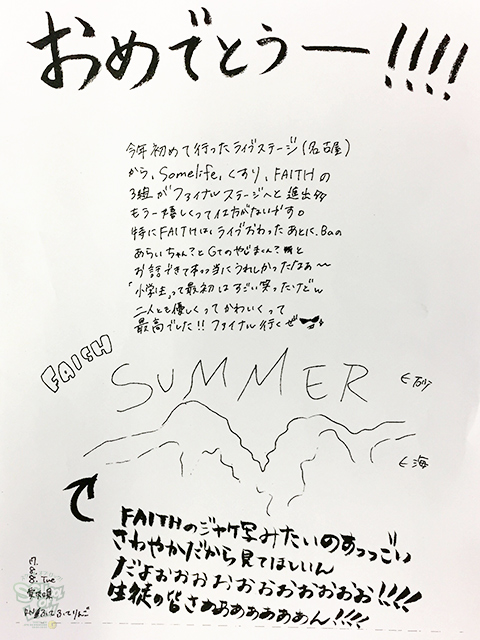 おめでとうー!!!!
今年初めて行ったライブステージ(名古屋)
から、Somelife、くすり、FAITHの
3組がファイナルステージへと進出
もう嬉しくって仕方がないげす。
特にFAITHはライブおわったあとに、Baの
あらいちゃん?とGtのやじまくん?と
お話できて本当にうれしかったなぁ〜
「小学生」って最初はすごい笑ったけどw
二人とも優しくってかわいくって
最高でした!!ファイナル行くぜ
FAITH
SUMMER
←砂
←海
FAITHのジャケ写みたいのすっっごい
さわやかだから見てほしいん
だよぉぉぉぉぉぉぉぉぉぉぉ!!!!
生徒の皆さぁぁぁぁぁぁん!!!!
17.
8.
8. Tue
愛知県